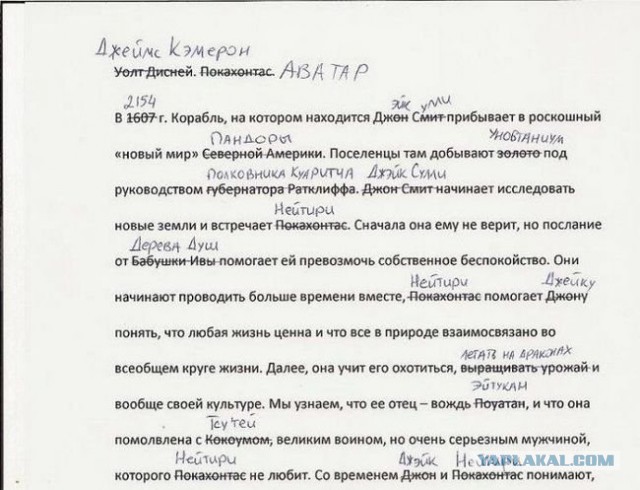 Джеймс Кэмерон
Уолт Дисней. Покахонтас. АВАТАР
2154 эйк уми
В 1607 г. Корабль, на котором находится Джон Смит прибывает в роскошный
ПАНДОРЫ УНОБТАНИУМ
«новый мир» Северной Америки. Поселенцы там добывают золото под
ПОЛКОВНИКА КУАРИТЧА ДЖЭЙК СУЛИ
руководством губернатора Ратклиффа. Джон Смит начинает исследовать
НЕЙТИРИ
новые земли и встречает Покахонтас. Сначала она ему не верит, но послание
Дерева Душ
от Бабушки Ивы помогает ей превозмочь собственное беспокойство. Они
Нейтири Джейку
начинают проводить больше времени вместе, Покахонтас помогает Джону
понять, что любая жизнь ценна и что все в природе взаимосвязано во
всеобщем круге жизни. Далее, она учит его охотиться, выращивать урожай и
ЛЕТАТЬ НА ДРАКОНАХ
ЭЙТУКАН
вообще своей культуре. Мы узнаем, что ее отец – вождь Поуатан, и что она
Тсутей
помолвлена с Кокоумом, великим воином, но очень серьезным мужчиной,
Нейтири Джэйк Нейтири
которого Покахонтас не любит. Со временем Джон и Покахонтас понимают,
YAPLAKAL.COM